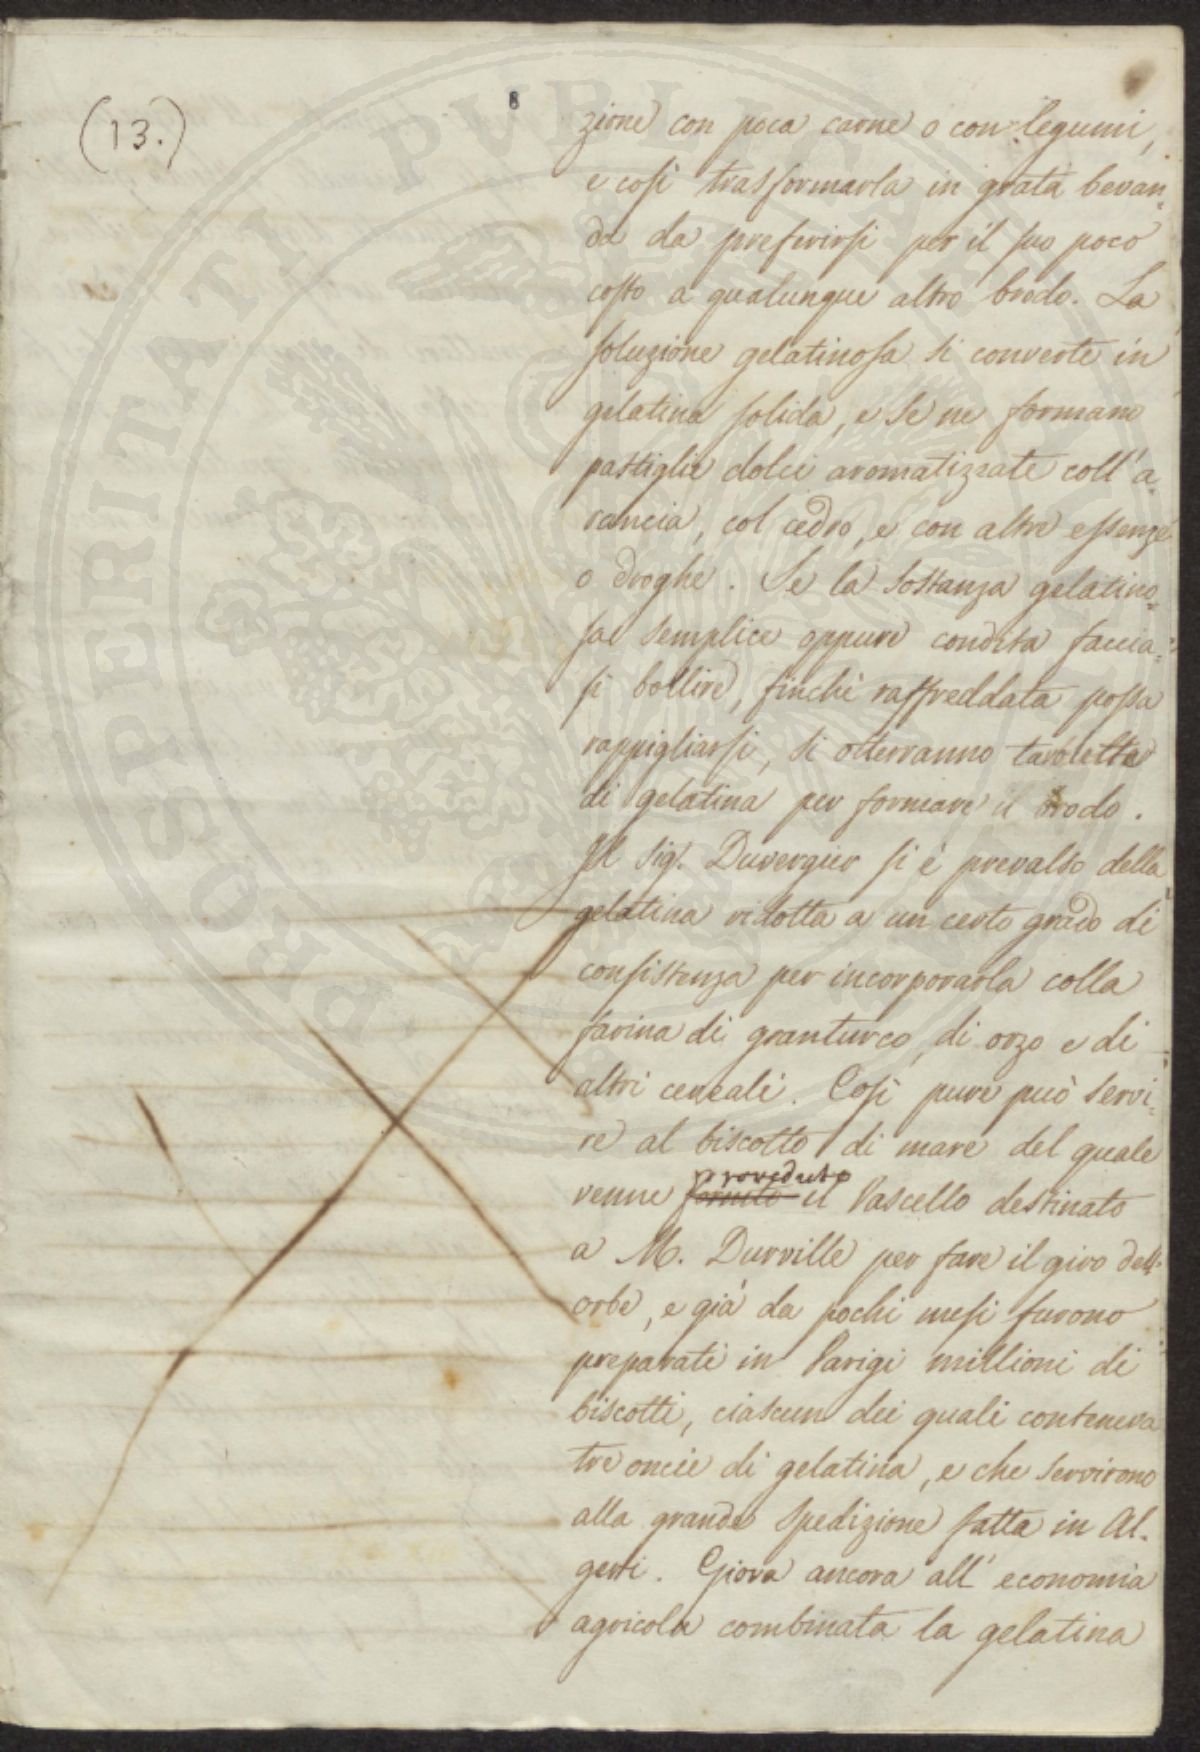 (13.)
8
zione con poca carne o con legumi,
e così trasformarla in grata bevan=
da da preferirsi per il suo poco
costo a qualunque altro brodo. La
soluzione gelatinosa si converte in
gelatina solida, e se ne formano
pastiglie dolci aromatizzate coll'a=
rancia, col cedro, e con altre essenze
o droghe. Se la sostanza gelatino=
sa semplice oppure condita faccia=
si bollire, finchè raffreddata possa
rappigliarsi, si otterranno tavolette
di gelatina per formare il brodo.
Il Sig.r Duvergier si è prevalso della
gelatina ridotta a un certo grado di
consistenza per incorporarla colla
farina di granturco, di orzo e di
altri cereali. Così pure può servi=
re al biscotto di mare del quale
proveduto
venne fornito il Vascello destinato
a M. Durville per fare il giro dell'
orbe, e già da pochi mesi furono
preparati in Parigi millioni di
biscotti, ciascun dei quali conteneva
tre oncie di gelatina, e che servirono
alla grande spedizione fatta in Al=
geri. Giova ancora all' economia
agricola combinata la gelatina
PROSPERITATI PVBLICAE